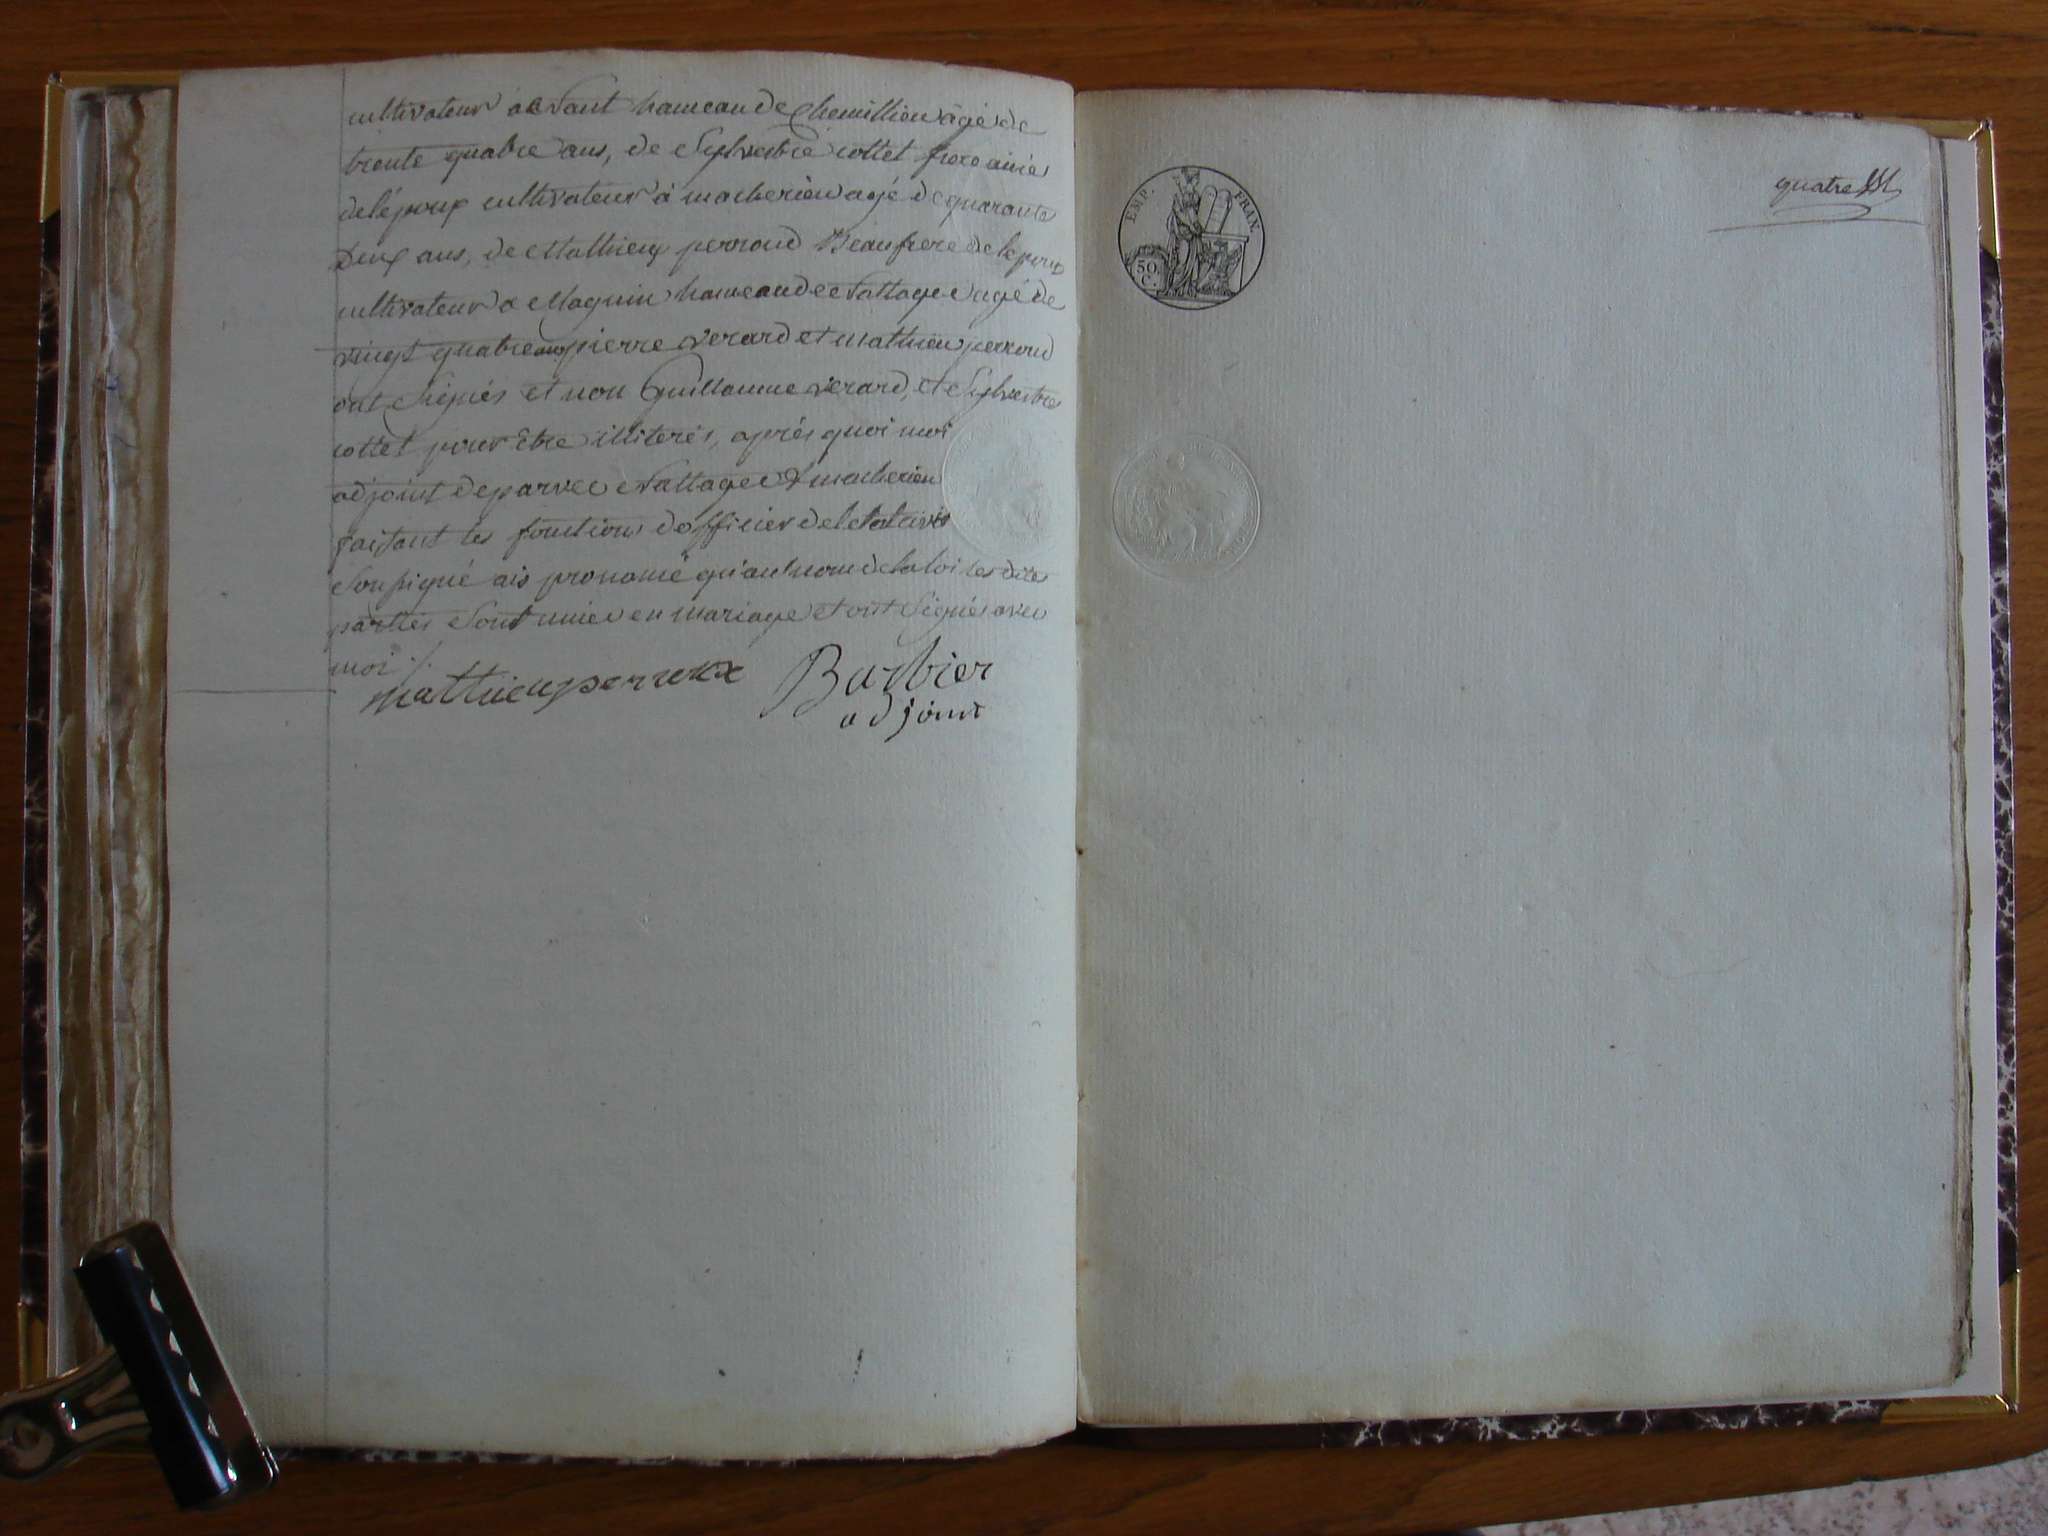 cultivateur a hameau de Chemillieu agé de
trente quatre ans, de Sylvestre cottet frere ainé
de lépoux cultivateur à marherieu agé de quarante
Deux ans, de Mathieu perroud Beaufrere de lepoux
cultivateur a Maguin hameau de Nattages agé de
vingt quatre ans pierre verard et mathieu perroud
ont Signés et non Guillaume verard, et Sylvestre
cottet pour être illiterés, aprés quoi moi
adjoint de parves Nattages & marherieu
faisant les fonctions d'officier de l'etat civil
Soussigné ais pronomé qu'au nom de la loi les dites
parties Sont uniés en mariage et ont Signés avec
moi ./.
mathieu perroux Barbier
adjoint
quatre
EMP. FRAN.
50
C.